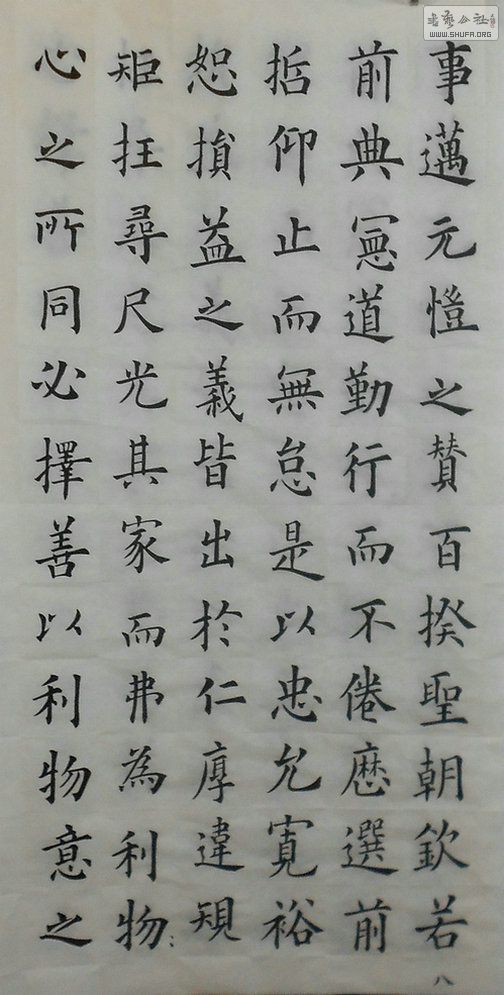 書藝公社
WWW.SHUFA.ORG
事邁元愷之賛百揆聖朝欽若
八
前典憲道勤行而不倦厯選前
哲仰止而無怠是以忠允寬裕
恕損益之義皆出於仁厚違規
矩抂尋尺光其家而弗為利物
心之所同必擇善以利物意之